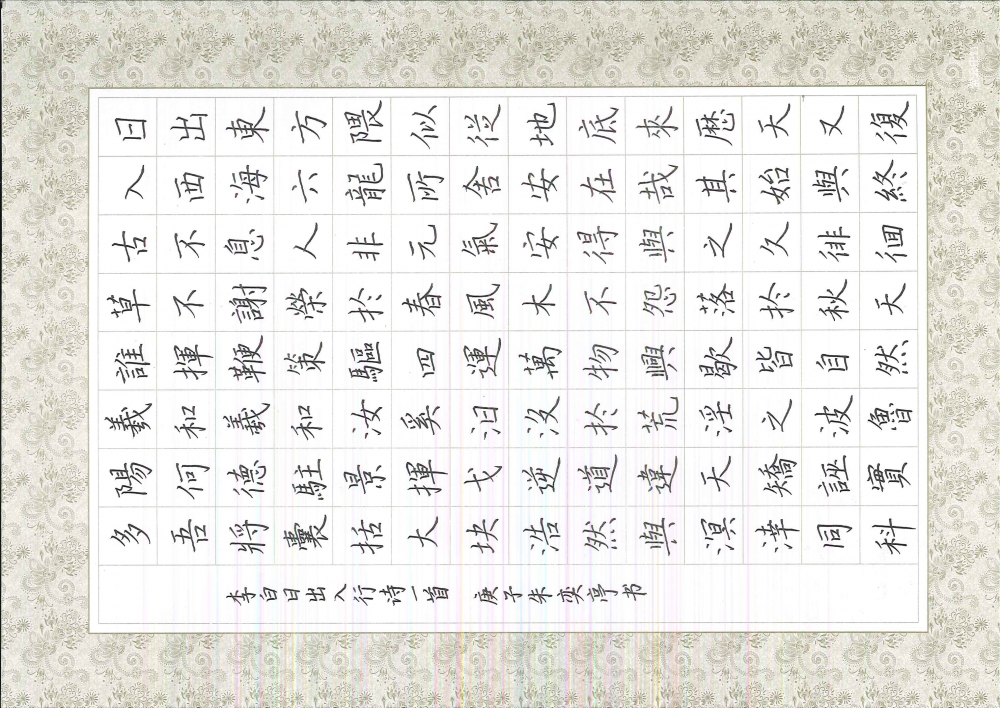 日出東方隈似從地底來歷天又復
入西海六龍所舍安在哉其始與終
古不息人非元氣安得與之久徘徊
草不謝榮於春風木不怨落於秋天
誰揮鞭策驅四運萬物興歇皆自然
羲和羲和汝奚汩沒於荒淫之波魯
陽何德駐景揮戈逆道違天矯誣實
多吾將囊括大块浩然與溟涬同科
李白日出入行诗一首 庚子朱奕亭书